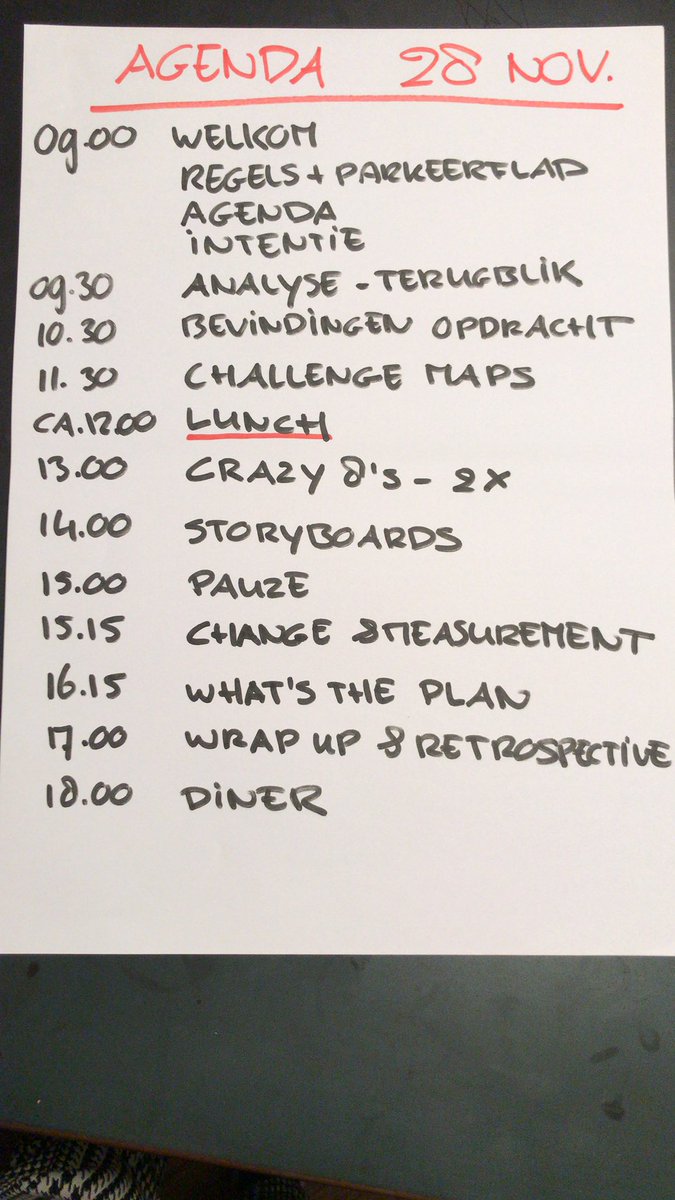 AGENDA 28 NOV.
09.00 WELKOM
REGELS + PARKEERFLAP
AGENDA
INTENTIE
09.30 ANALYSE - TERUGBLIK
10.30 BEVINDINGEN OPDRACHT
11.30 CHALLENGE MAPS
CA.12.00 LUNCH
13.00 CRAZY 8's - 2X
14.00 STORYBOARDS
15.00 PAUZE
15.15 CHANGE & MEASUREMENT
16.15 WHAT'S THE PLAN
17.00 WRAP UP & RETROSPECTIVE
18.00 DINER